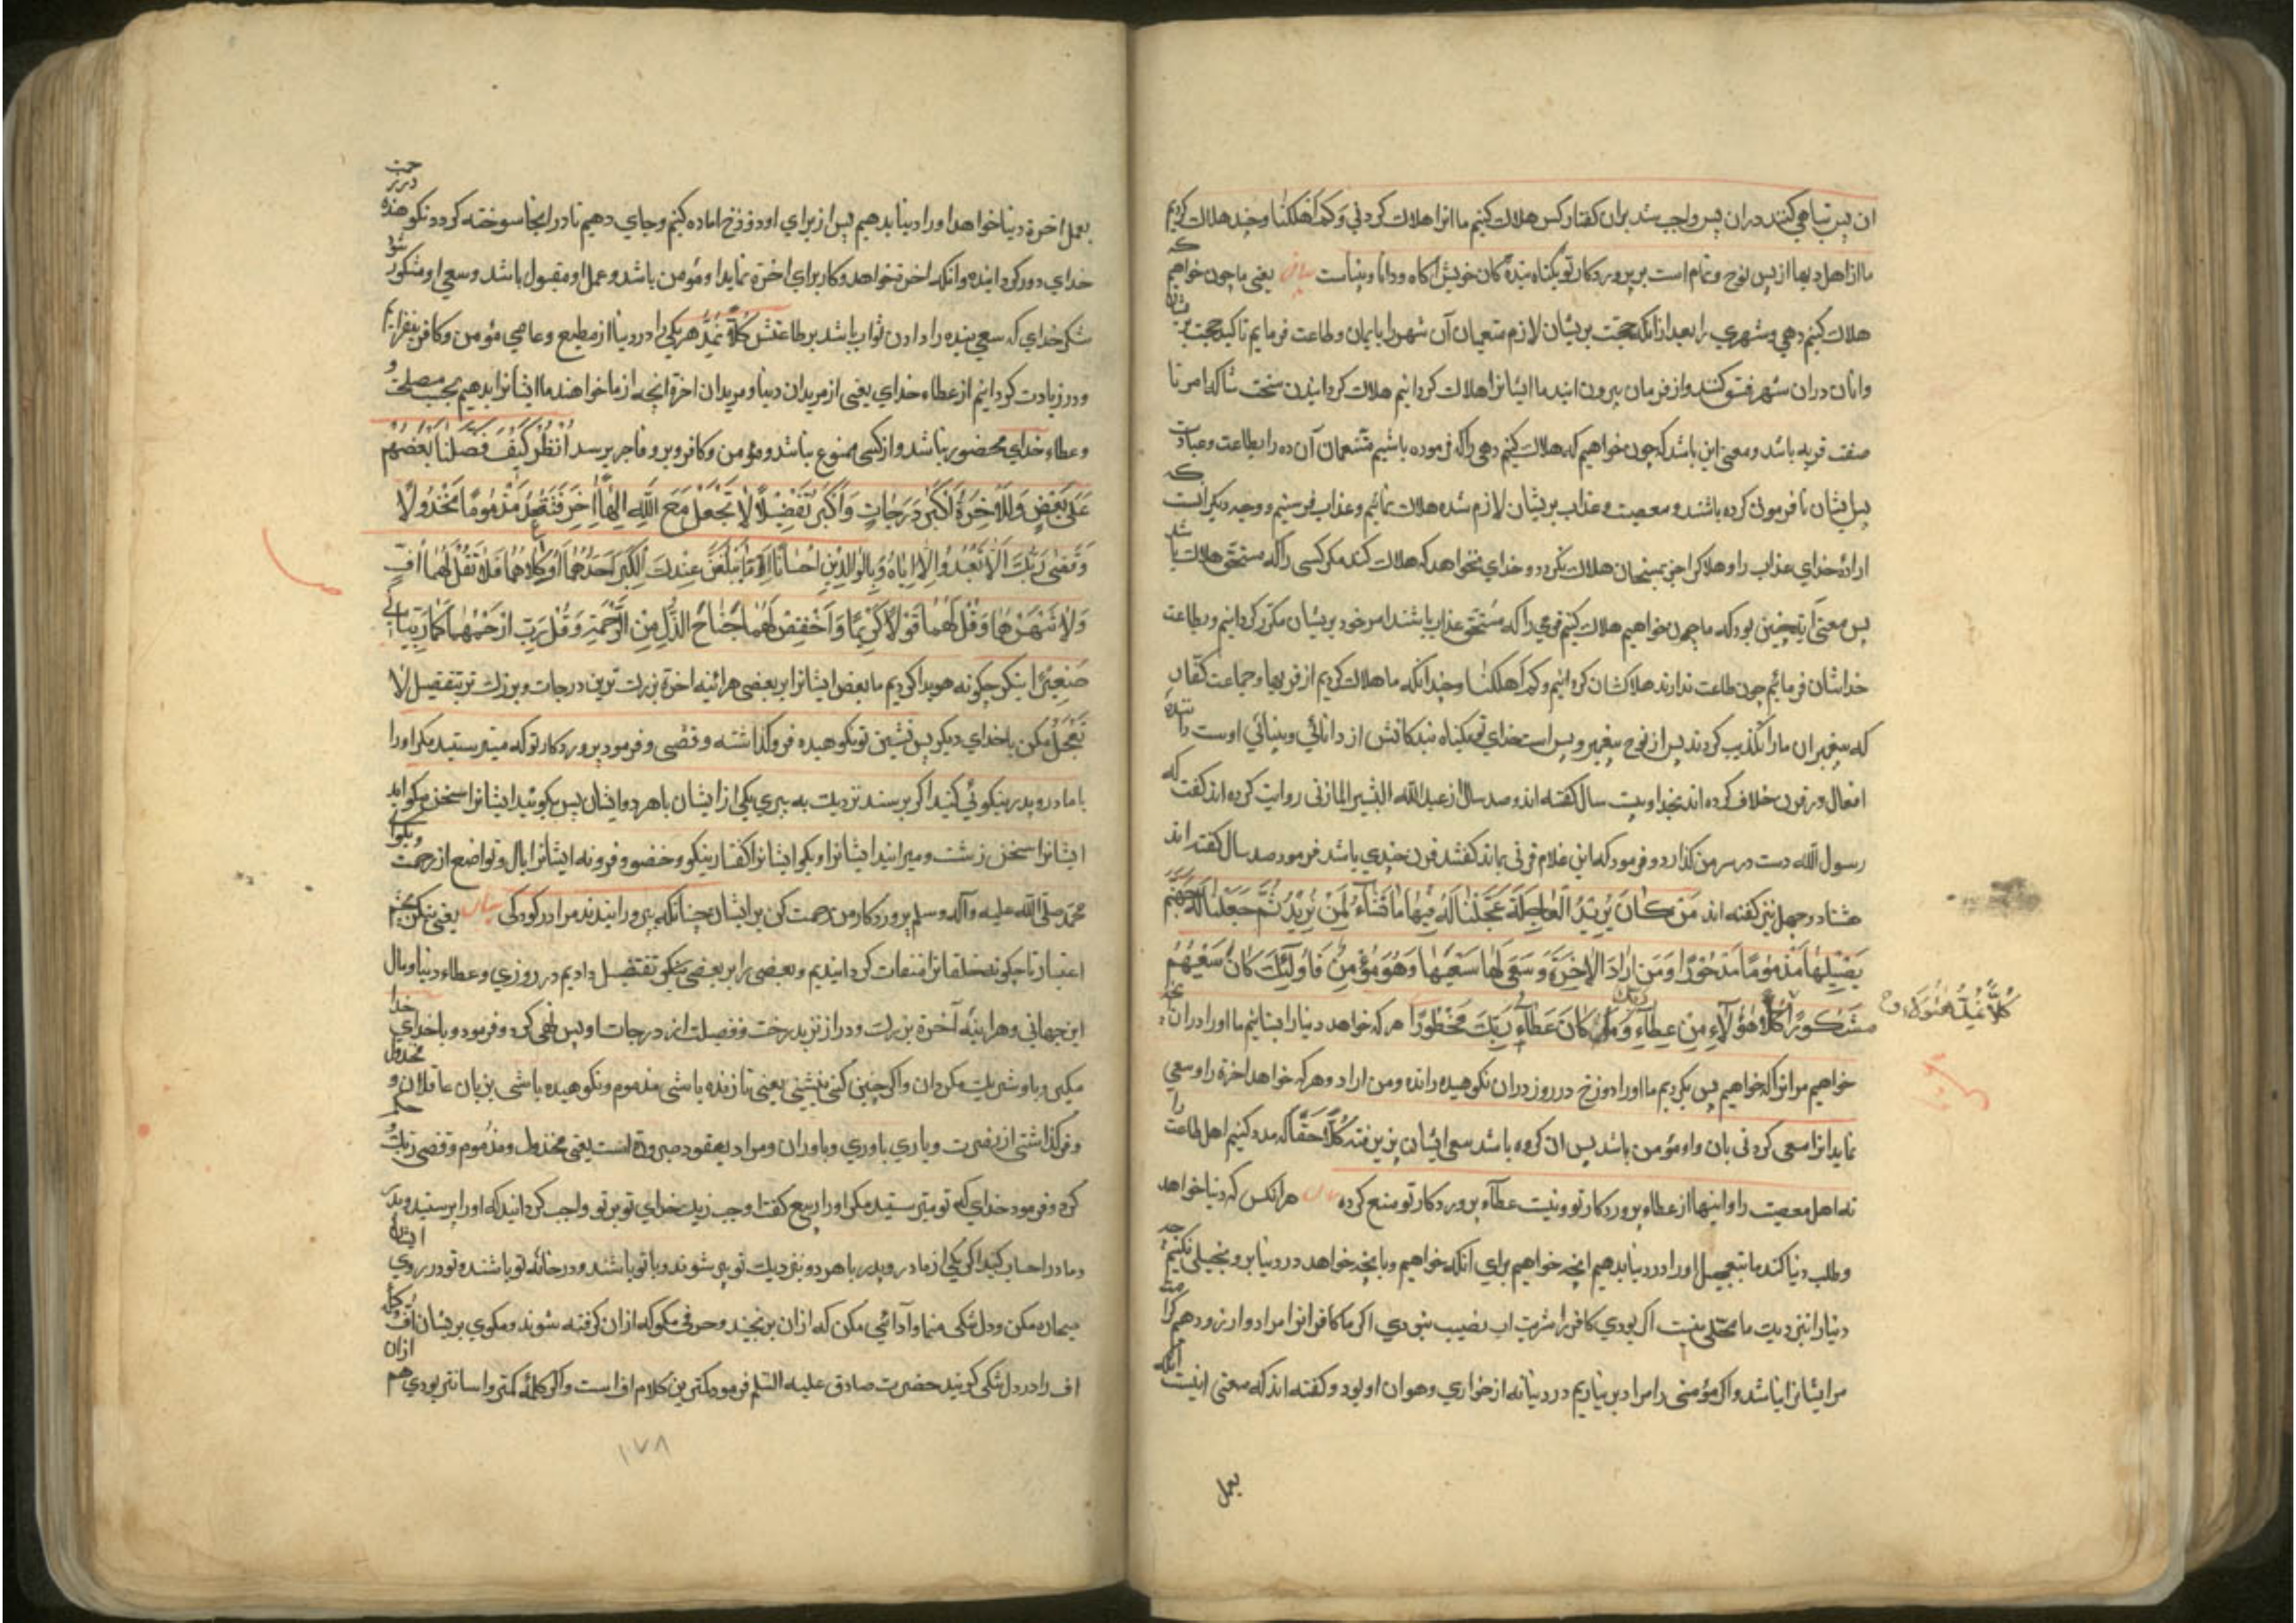 ان پس تباهی کنند در ان پس واجب شد بران کفتار کس هلاک کنیم ما انرا هلاک کردنی وَکَم اَهلَکنا وچند هلاک کردیم
ما از اهل دیها از پس نوح وتمام است بر پروردکار تو بکناه بندهٔ کان خویش اکاه ودانا وبیناست بیان یعنی ما چون خواهیم که
هلاک کنیم دهی وشهری را بعد از انکه حجت بریشان لازم متنعمان آن شهر را بایمان وطاعت فرمایم تاکید حجت بریشان
وانان دران شهر فسق کنند واز فرمان بیرون ایند ما ایشانرا هلاک کردانیم هلاک کردانیدن سخت امرنا
صفت قریه باشد ومعنی این باشد که چون خواهیم که هلاک کنیم دهی را که فرموده باشیم متنعمان آن ده را بطاعت وعبادت
پس ایشان نافرمونی کرده باشند ومعصیت وعذاب بریشان لازم شده هلاک نمائیم وعذاب فرستیم ووجه دیکر انست که
ارادهٔ خدای عذاب را وهلاک را جز بمستحقان هلاک نکردد وخدای نخواهد که هلاک کند مکر کسی را که مستحق هلاک باشد
پس معنی ایة چنین بود که ما چون خواهیم هلاک کنیم قومی را که مستحق عذاب باشند امر خود بریشان مکرر کردانیم وبطاعت
خداشان فرمائیم چون طاعت ندارند هلاکشان کردانیم وکم اهلکنا وچندانکه ما هلاک کردیم از قریها وجماعت کفار
که پیغمبران ما را تکذیب کردند پس از نوح پیغمبر وبس است خدای تو بکناه بندکانش از دانائی وبینائی اوست داننده
افعال ودر قرن خلاف کرده اند بخدا وبیست سال کفته اند وصد سال از عبدالله البشیر المازنی روایت کرده اند کفت که
رسول الله دست در سر من کذارد وفرمود که این غلام قرنی بماند کفتند قرن چندی باشد فرمود صد سال کفته اند
هشتاد وچهل نیز کفته اند مَن کانَ یُریدُ العاجِلَةَ عَجَّلنا لَهُ فیها ما نَشاءُ لِمَن نُریدُ ثُمَّ جَعَلنا لَهُ جَهَنَّمَ
یَصلیها مَذمومًا مَدحورًا وَمَن اَرادَ الاخِرَةَ وَسَعی لَها سَعیَها وَهُوَ مُؤمِنٌ فَاُولٰئِکَ کانَ سَعیُهُم
مَشکورًا کُلّاً هٰؤُلاءِ مِن عَطاءِ رَبِّکَ وَما کانَ عَطاءُ رَبِّکَ مَحظورًا هر که خواهد دنیا را بشتابانیم ما او را دران
کُلّاً نُمِدُّ هٰؤُلاءِ
خواهیم مر انرا که خواهیم پس بکردیم ما او را دوزخ در روز دران نکوهیده رانده ومن اراد وهر که خواهد اخرة را وسعی
نماید انرا سعی کردنی بان واو مؤمن باشد پس ان کروه باشد سعی ایشان پذیرفته کُلّاً حقا که مدد کنیم اهل طاعت را
نه اهل معصیت را واینها از عطاء پروردکار تو ونیست عطآء پروردکار تو منع کرده بیان هر انکس که دنیا خواهد
وطلب دنیا کند ما بتعجیل او را در دنیا بدهیم انچه خواهیم برای انکه خواهیم وبانچه خواهد در دنیا برو بخیلی نکنیم چه
دنیا را نزدیک ما محلی نیست اکر بودی کافر را شربت اب نصیب نبودی اکر ما کافرانرا مراد وارزو دهیم کرامت
مر ایشانرا نباشد واکر مؤمنی را مراد بر نیاریم در دنیا نه از خواری وهوان او بود وکفته اند که معنی اینست انکه
بعمل
بعمل اخرة دنیا خواهد او را دنیا بدهیم پس از برای او دوزخ اماده کنیم وجای دهیم تا در انجا سوخته کردد نکوهیده
خدای دور کردانیده وانکه اخرة خواهد وکار برای اخرة نماید او مؤمن باشد وعمل او مقبول باشد وسعی او مشکور شد
شکر خدای که سعی بنده را دادن ثواب باشد بر طاعتش کُلّاً نُمِدُّ هر یکی را در دنیا از مطیع وعاصی مؤمن وکافر بیفزایم
ودر زیادت کردانیم از عطاء خدای یعنی از مریدان دنیا ومریدان اخرة انچه از ما خواهند ما ایشانرا بدهیم بحسب مصلحت و
وعطاء خدای محضور نباشد واز کسی ممنوع نباشد ومؤمن وکافر وبر وفاجر برسد اُنظُر کَیفَ فَضَّلنا بَعضَهُم
عَلی بَعضٍ وَلَلاخِرَةُ اَکبَرُ دَرَجاتٍ وَاَکبَرُ تَفضیلاً لا تَجعَل مَعَ اللهِ اِلٰهًا اخَرَ فَتَقعُدَ مَذمومًا مَخذولاً
وَقَضی رَبُّکَ اَلّا تَعبُدوا اِلّا اِیّاهُ وَبِالوالِدَینِ اِحسانًا اِمّا یَبلُغَنَّ عِندَکَ الکِبَرَ اَحَدُهُما اَو کِلاهُما فَلا تَقُل لَهُما اُفٍّ
وَلا تَنهَرهُما وَقُل لَهُما قَولاً کَریمًا وَاخفِض لَهُما جَناحَ الذُّلِّ مِنَ الرَّحمَةِ وَقُل رَبِّ ارحَمهُما کَما رَبَّیانی
صَغیرًا بنکر چکونه هویدا کردیم ما بعض ایشانرا بر بعضی هر ائینه اخرة بزرک ترین درجات وبزرک تر بتفضیل لا
تَجعَل مکن با خدای دیکر پس نشین تو نکوهیده فرو کذاشته وقضی وفرمود پروردکار تو که مپرستید مکر او را
با مادر وپدر نیکوئی کنید اکر برسند نزدیک به پیری یکی از ایشان یا هر دو ایشان پس مکوئید ایشانرا سخن
ایشانرا سخن زشت ومرانید ایشانرا وبکو ایشانرا کفتار نیکو وخضو وفرونه ایشانرا بال وتواضع از رحمت وبکو
محمد صلی الله علیه وآله وسلم پروردکار من رحمت کن بر ایشان چنانکه بپرورانیدند مرا در کودکی بیان یعنی بنکر بچشم
اعتبار تا چکونه خلقانرا متفاوت کردانیدیم وبعضی را بر بعضی بنکو تفضیل دادیم در روزی وعطاء دنیا ومال
این جهانی وهر اینه آخرة بزرک ودراز تر بدرخت وفضیلت از درجات او پس نهی کرد وفرمود وبا خدای خدا
مکیر وباو شریک مکردان واکر چنین کنی بنشینی یعنی تا زنده باشی مذموم ونکوهیده باشی بزبان عاقلان و مخذول
وفرو کذاشتی از نصرت ویاری یاوری ویاوران ومراد بقعود صیرورة است یعنی مخذول ومذموم وقضی ربک
کرد وفرمود خدای که تو مپرستید مکر او را ربیع کفت اوجب ربک خدای تو بر تو واجب کردانید که او را پرستید وپدر
ومادر احسان کنید اکر یکی از مادر وپدر یا هر دو نزدیک تو پیر شوند وبا تو باشند ودر خانهٔ تو باشند وتو در روی ایشان
مکن ودل تنکی منما وآدائی مکن که ازان برنجید وحرفی مکو که ازان کرفته شوند ومکوی بریشان اف
اف را در دل تنکی کویند حضرت صادق علیه السلم فرمود کمترین کلام اف است واکر کلمهٔ کمتر واسانتر بودی هم ازان
۱۷۸